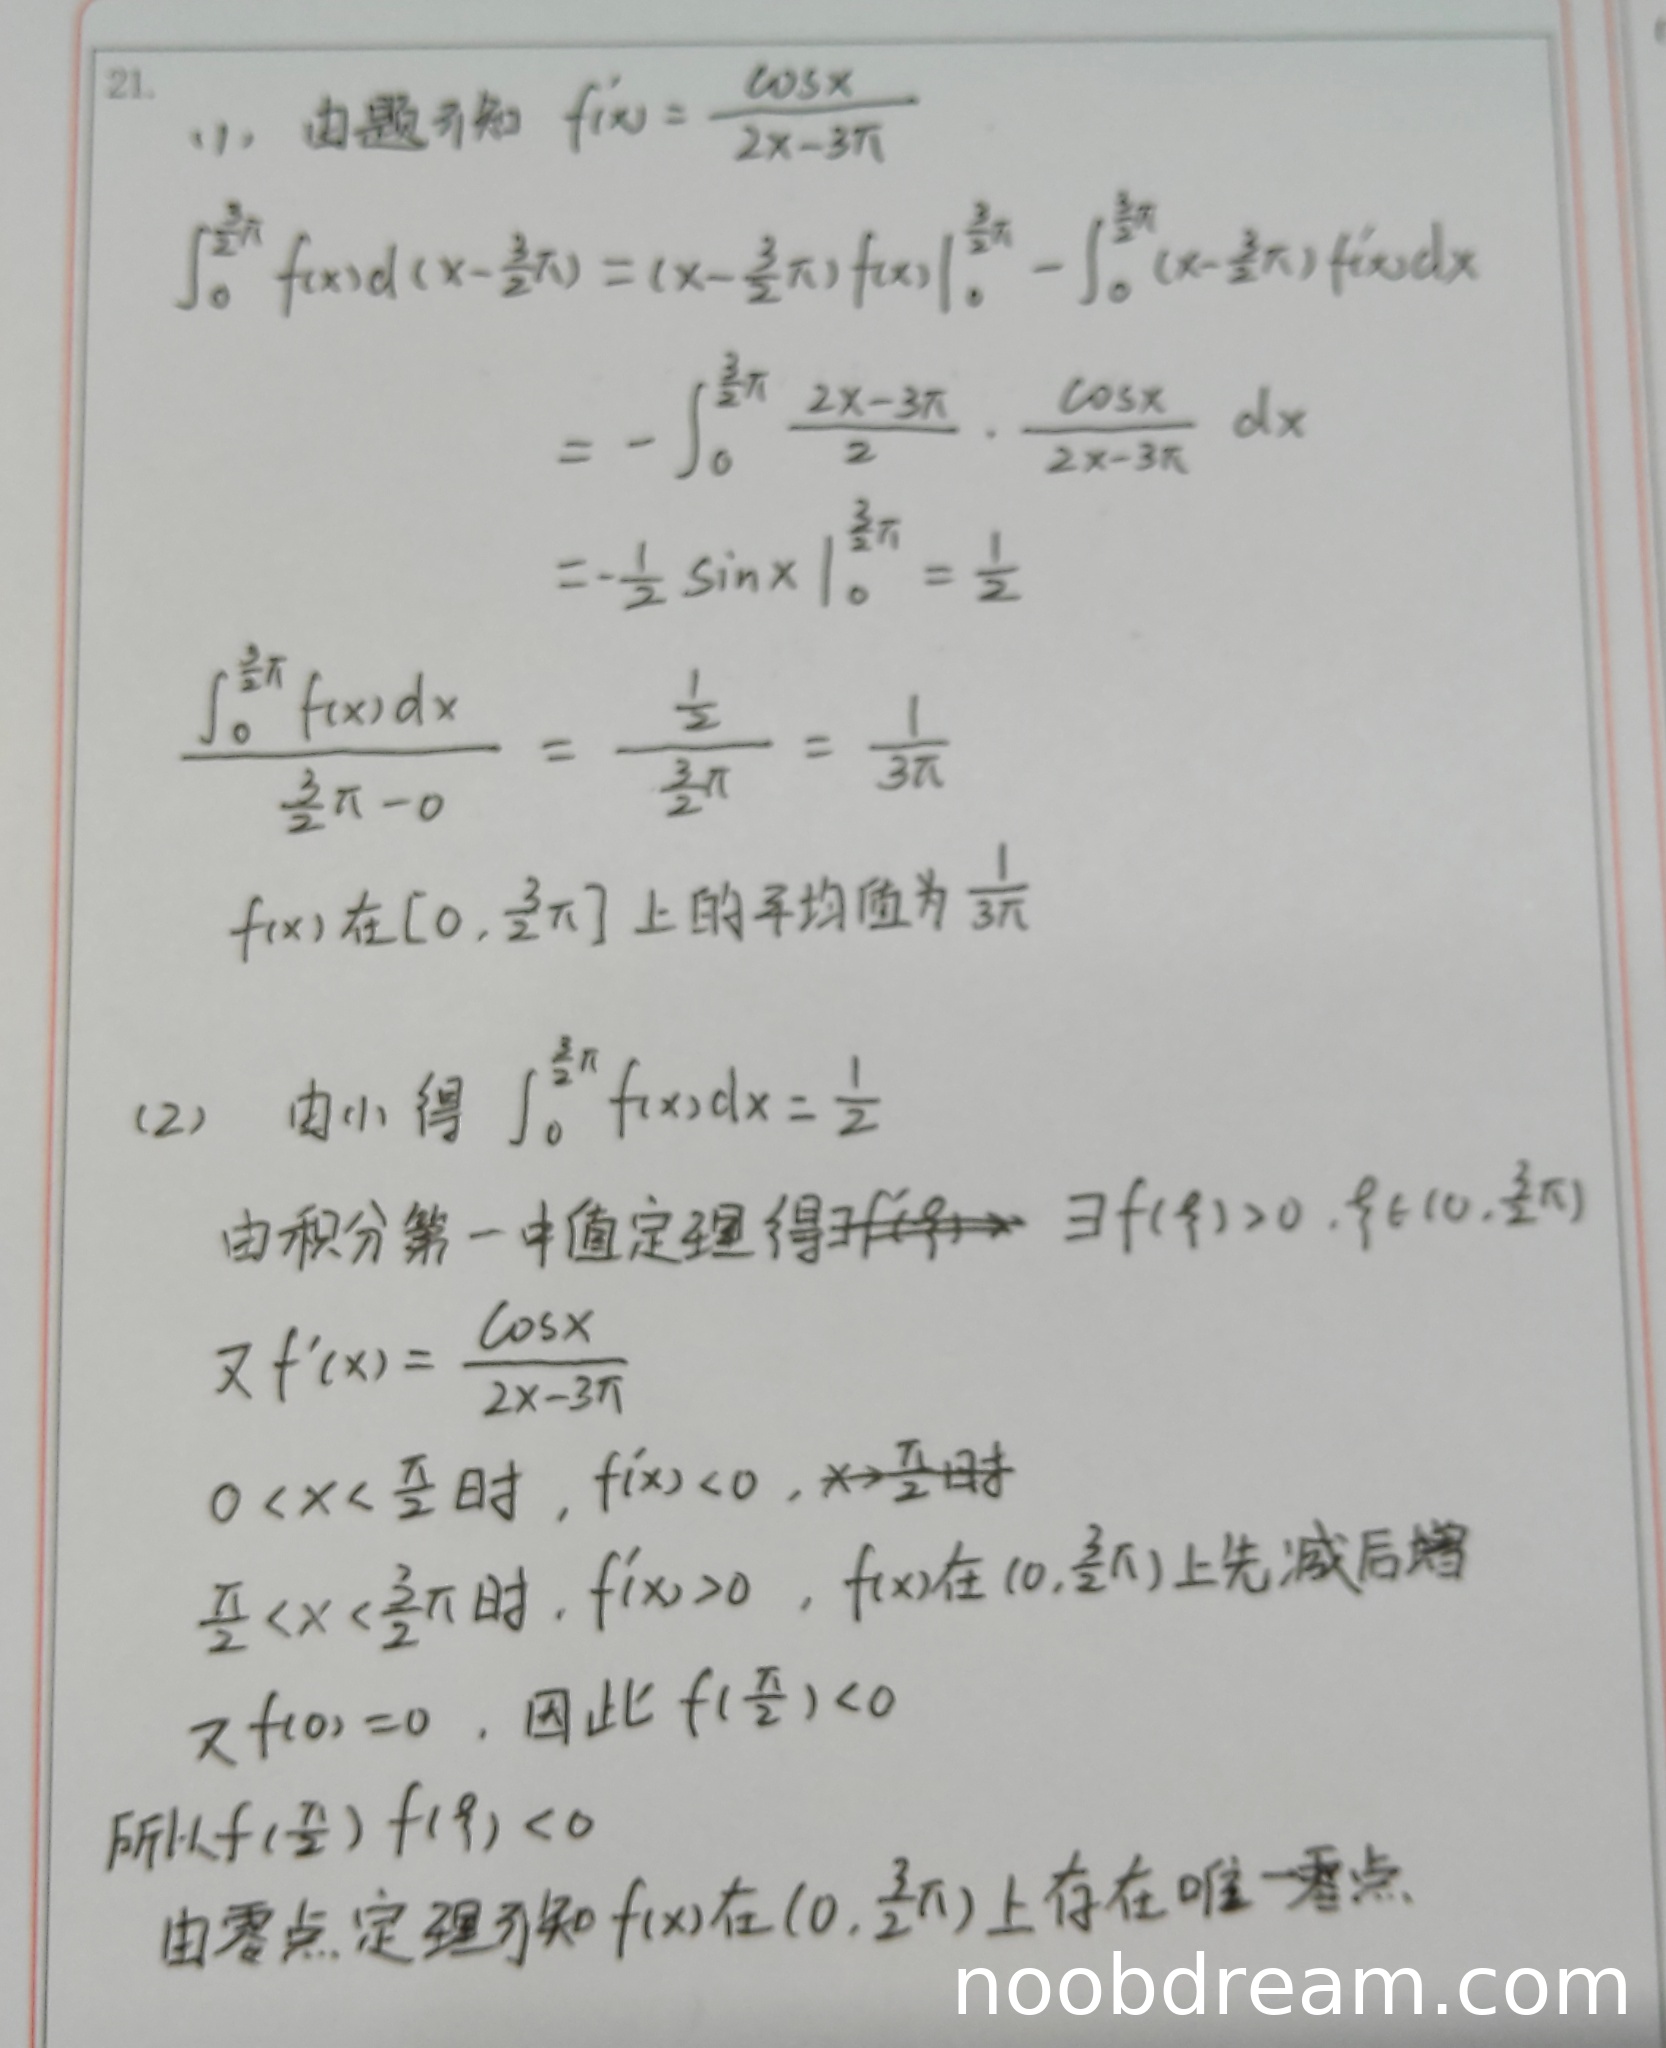 21.
(1), 由题可知 f'(x) = cosx / (2x-3π)
∫₀^{3/2 π} f(x)d(x-3/2 π) = (x-3/2 π)f(x)|₀^{3/2 π} - ∫₀^{3/2 π} (x-3/2 π)f'(x)dx
= - ∫₀^{3/2 π} (2x-3π)/2 · cosx/(2x-3π) dx
= -1/2 sinx |₀^{3/2 π} = 1/2
∫₀^{3/2 π} f(x)dx / (3/2 π - 0) = (1/2) / (3/2 π) = 1/(3π)
f(x)在[0, 3/2 π]上的平均值为 1/(3π)
(2) 由(1)得 ∫₀^{3/2 π} f(x)dx = 1/2
由积分第一中值定理得 ∃f(ξ)>0, ξ∈(0, 3/2 π)
又f'(x) = cosx / (2x-3π)
0<x<π/2时, f'(x)<0,
π/2<x<3/2 π时, f'(x)>0, f(x)在(0, 3/2 π)上先减后增
又f(0)=0, 因此f(π/2)<0
所以f(π/2)f(ξ)<0
由零点定理可知f(x)在(0, 3/2 π)上存在唯一零点.
noobdream.com